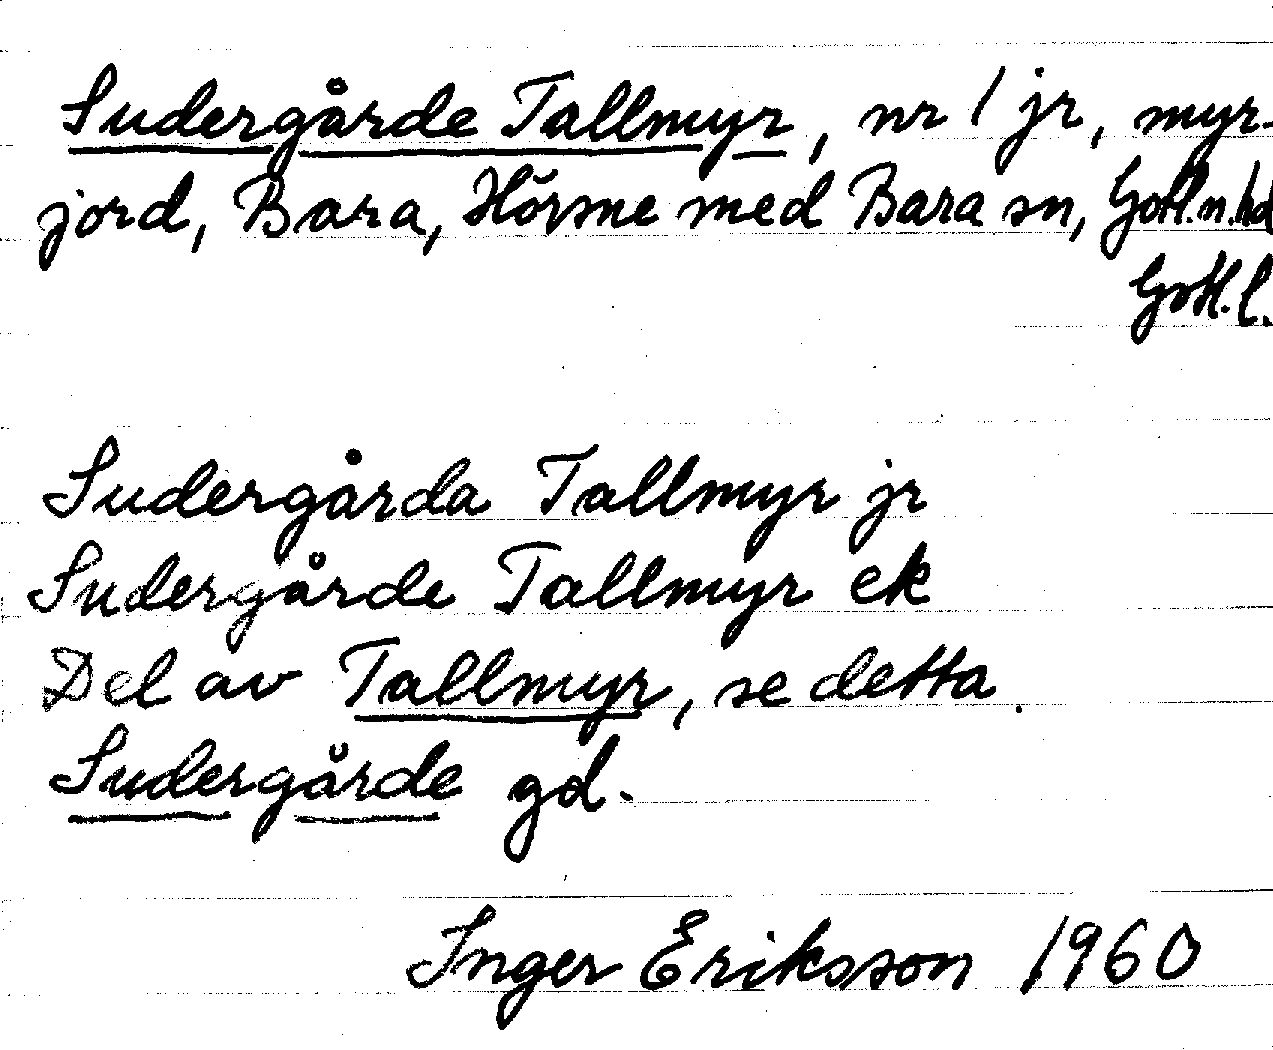 Sudergårde Tallmyr, nr 1 jr, myr-
jord, Bara, Hörsne med Bara sn, Gotl.n.hd
Gotl.l.
Sudergårda Tallmyr jr
Sudergårde Tallmyr ek
Del av Tallmyr, se detta.
Sudergårde gd.
Inger Eriksson 1960